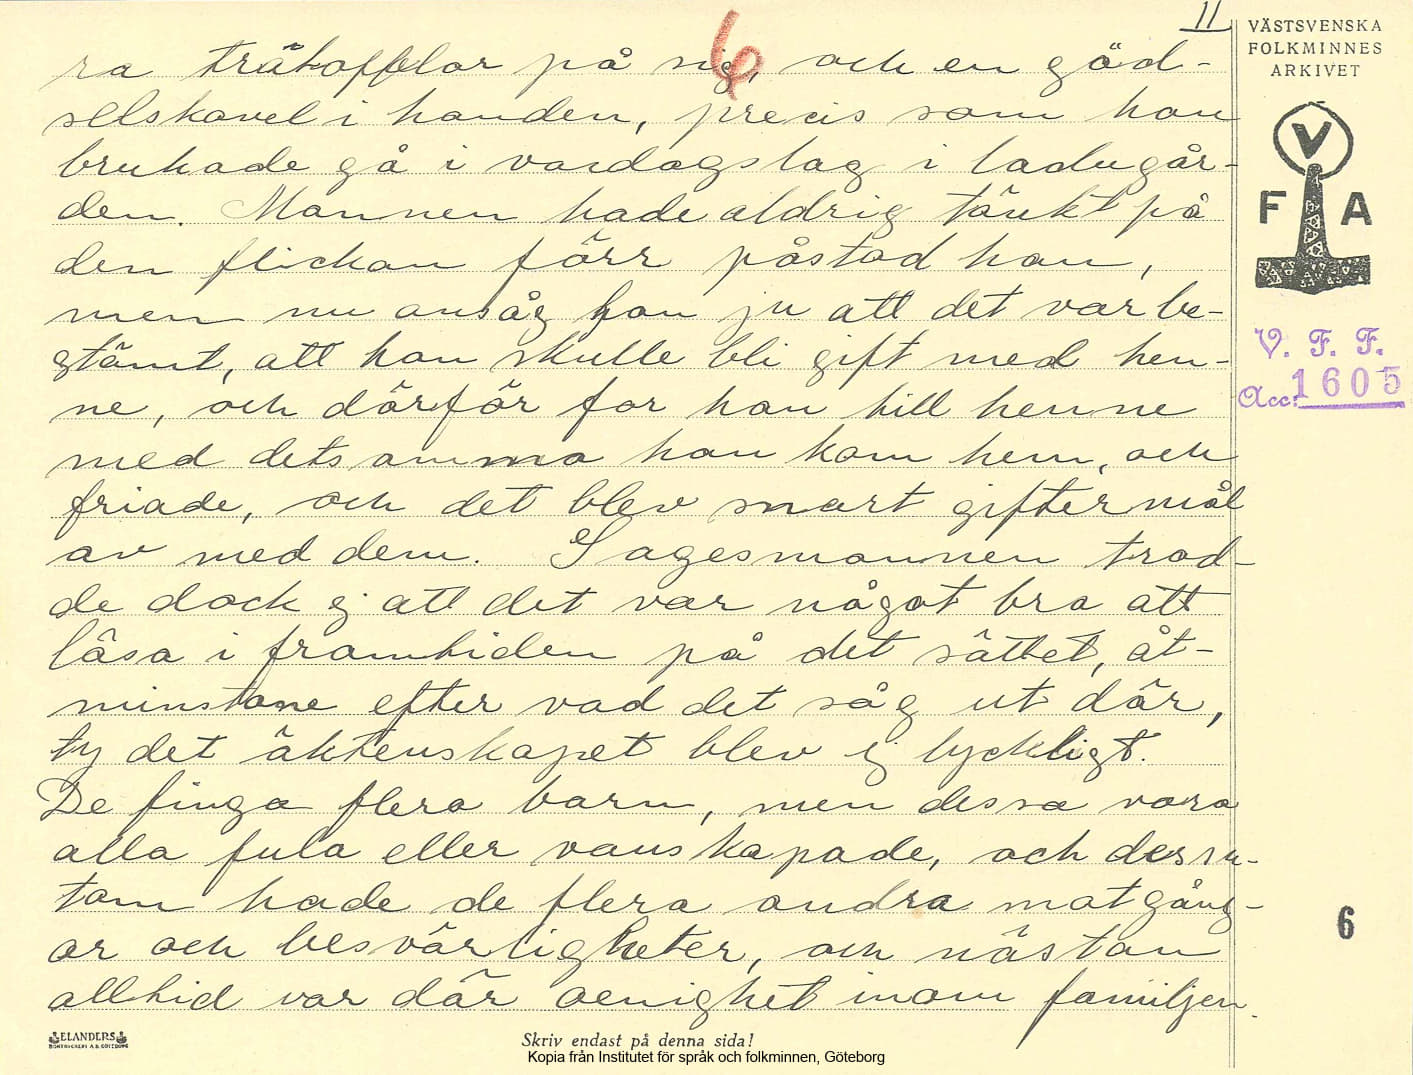 11
VÄSTSVENSKA
FOLKMINNES
ARKIVET
V
F A
V. F. F.
Acc: 1605
6
ra trätofflor på sig, och en göd-
selskovel i handen, precis som hon
brukade gå i vardagslag i ladugår-
den. Mannen hade aldrig tänkt på
den flickan förr påstod han,
men nu ansåg han ju att det var be-
stämt, att han skulle bli gift med hen-
ne, och därför for han till henne
med detsamma han kom hem, och
friade, och det blev snart giftermål
av med dem. Sagesmannen trod-
de dock ej att det var något bra att
läsa i framtiden på det sättet, åt-
minstone efter vad det såg ut där,
ty det äktenskapet blev ej lyckligt.
De finga flera barn, men dessa voro
alla fula eller vanskapade, och dessu-
tom hade de flera andra motgång-
ar och besvärligheter, och nästan
alltid var där oenighet inom familjen.
6
ELANDERS
BOKTRYCKERI A.B. GÖTEBORG
Skriv endast på denna sida!
Kopia från Institutet för språk och folkminnen, Göteborg